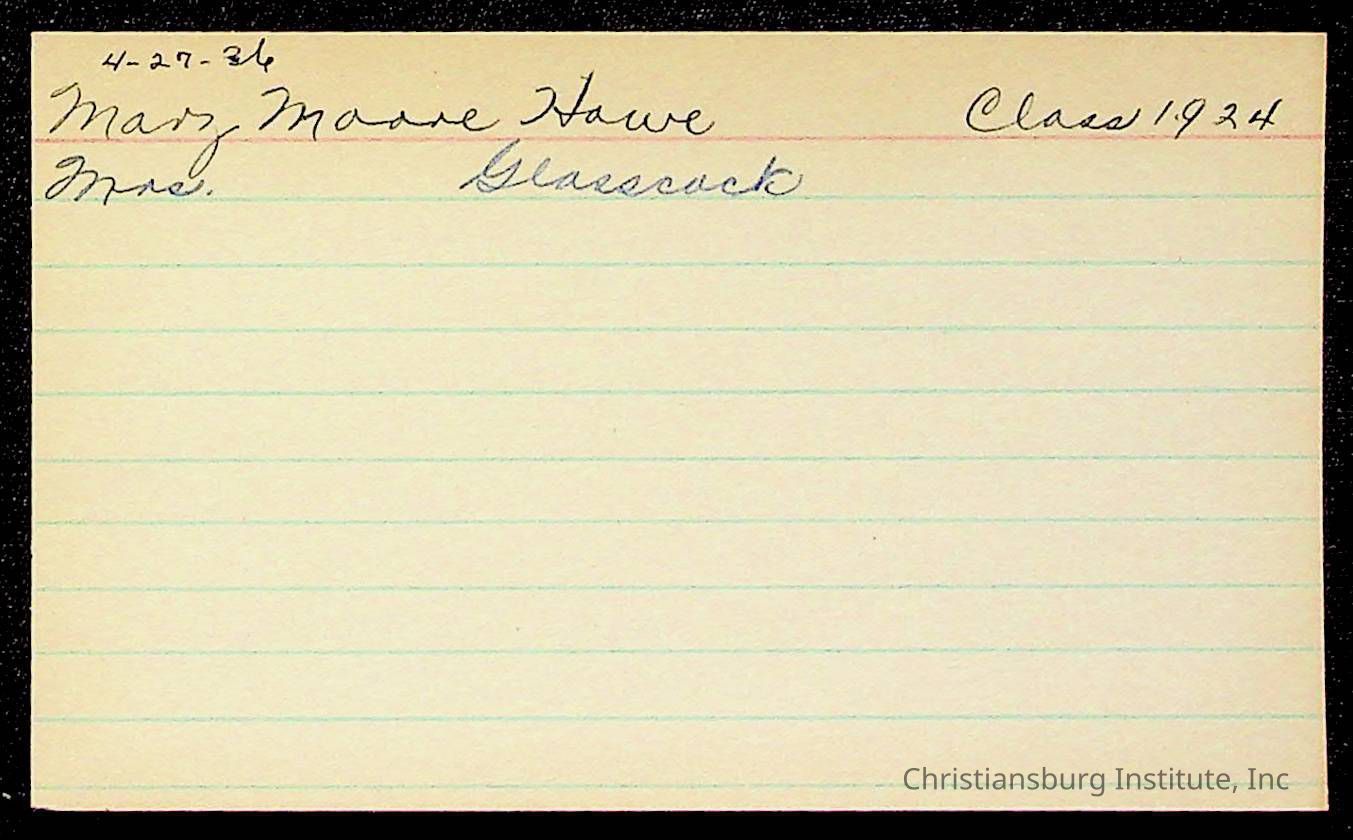 4-27-36
Mary Moore Howe Class 1924
Mrs. Glasscock
Christiansburg Institute, Inc